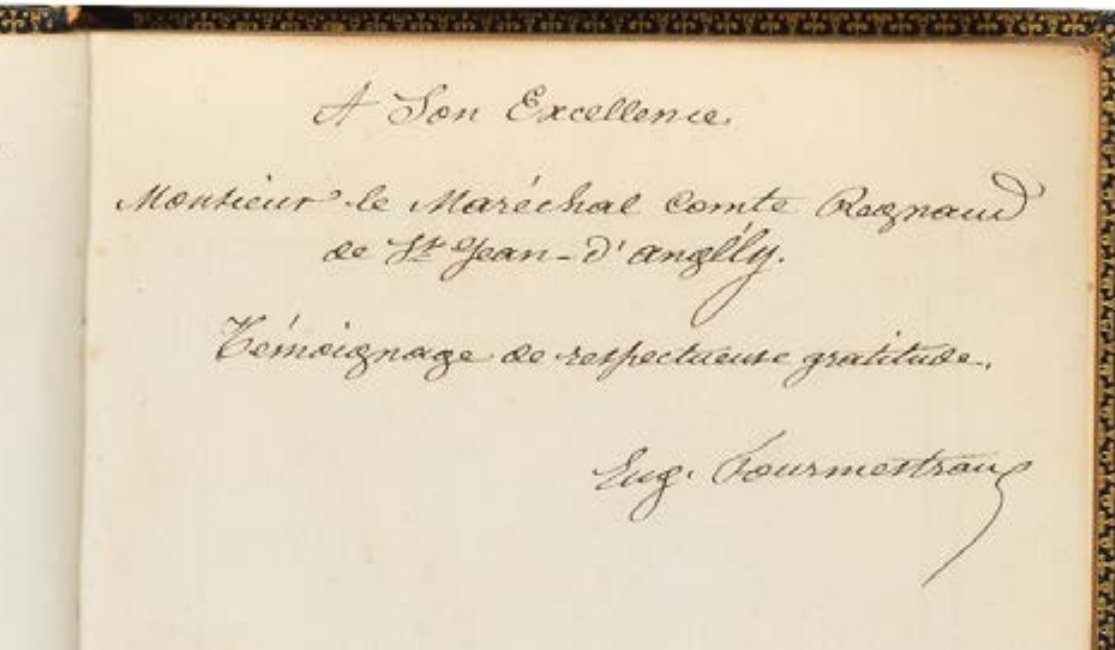 A Son Excellence.
Monsieur le Maréchal Comte Regnaud
de St Jean-d'angély.
Témoignage de respectueuse gratitude.
Eug. Fourmestraux